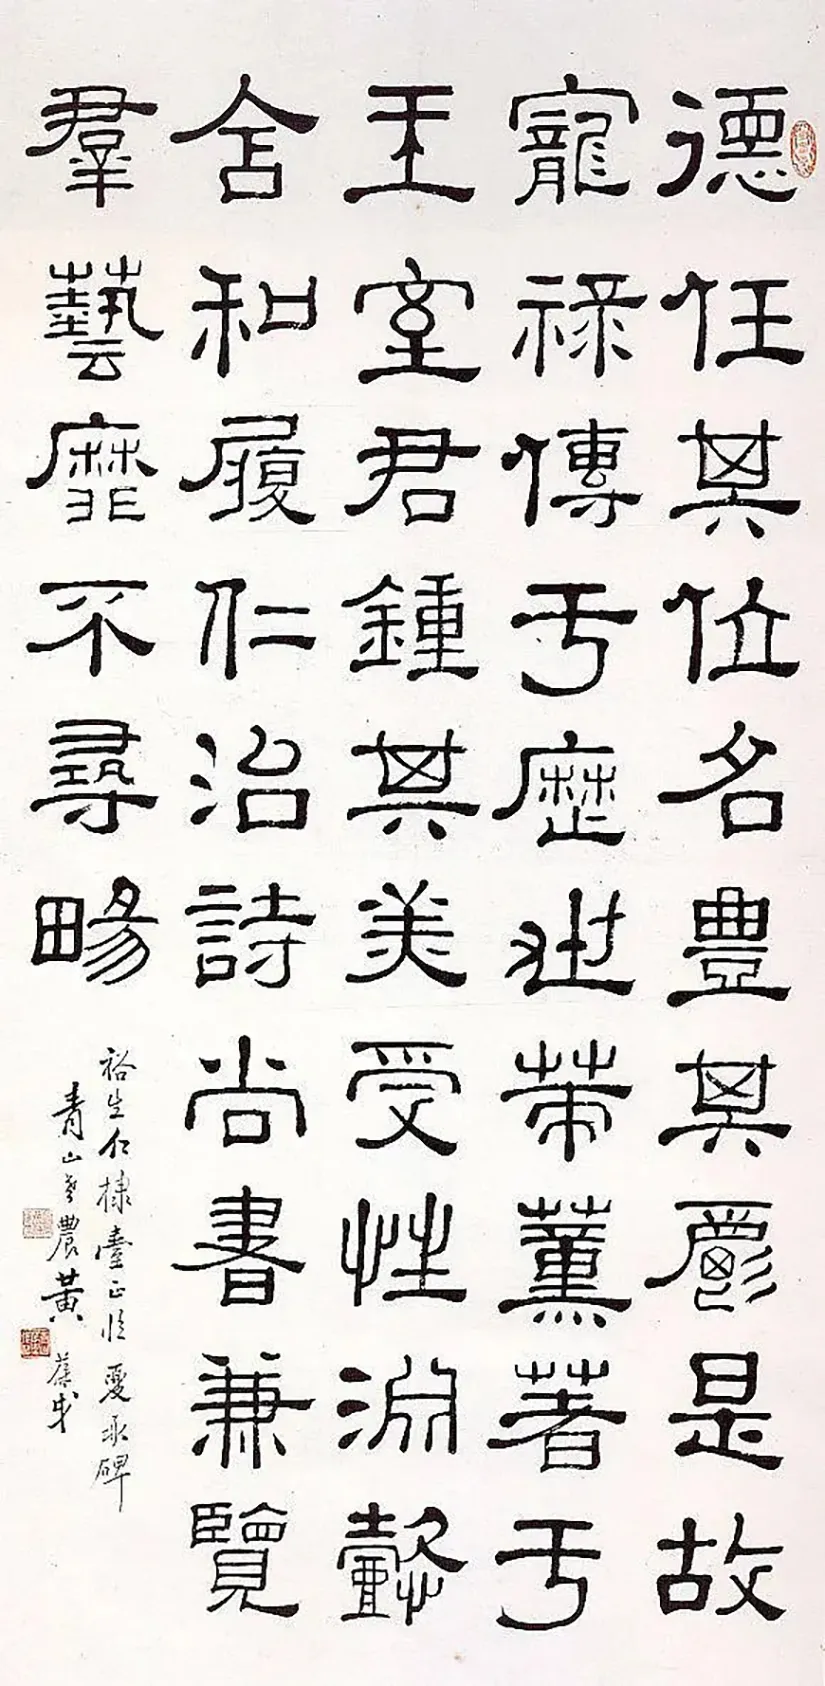 德任其位名豐其爵是故
寵祿傳于歷世策薰著于
王室君鍾其美受性淵懿
含和履仁治詩尚書兼覽
羣藝靡不尋暢
裕生仁棣臺正臨夏承碑
青山老農黃葆戉